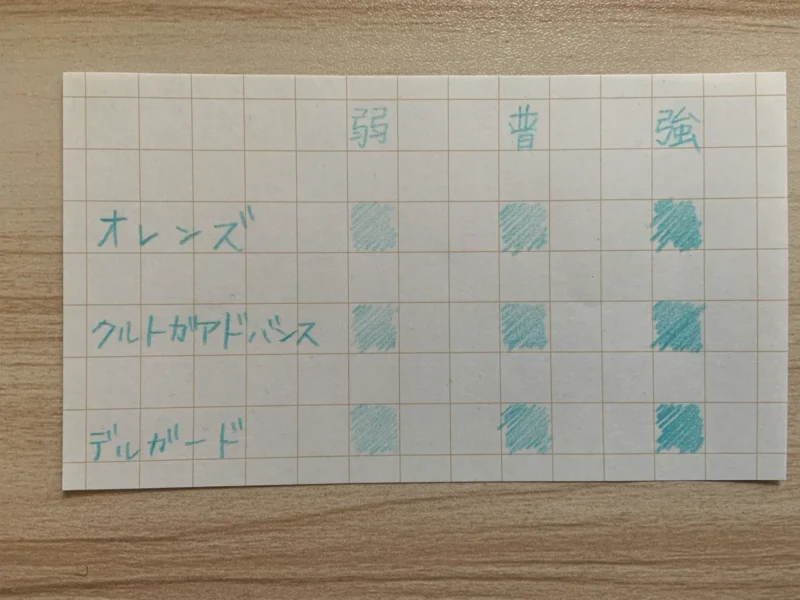 弱 普 強
オレンズ
クルトガアドバンス
デルガード